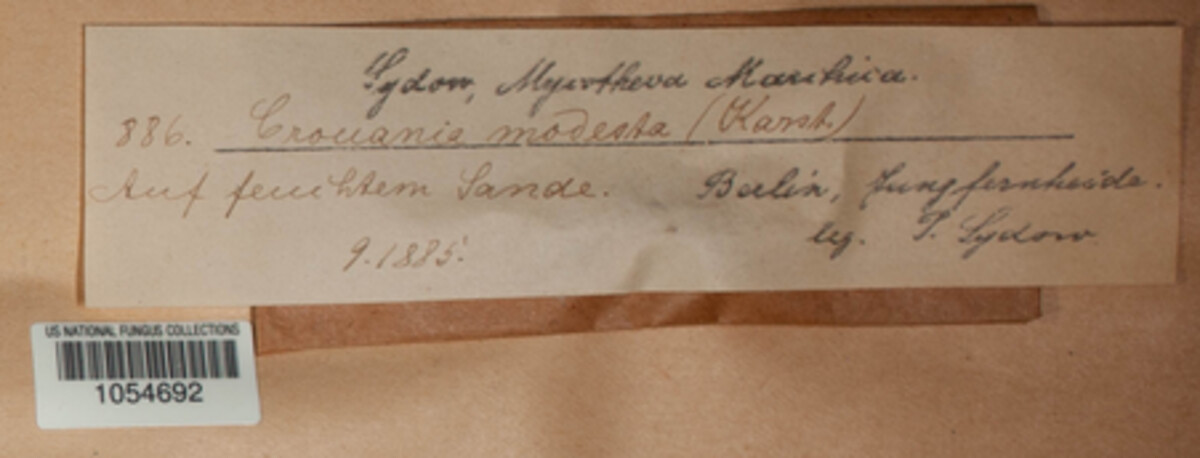 Sydow, Mycotheca Marchica.
886. Crouania modesta (Karst.)
Auf feuchtem Sande. Berlin, Jungfernheide.
9.1885. leg. P. Sydow
US NATIONAL FUNGUS COLLECTIONS
1054692